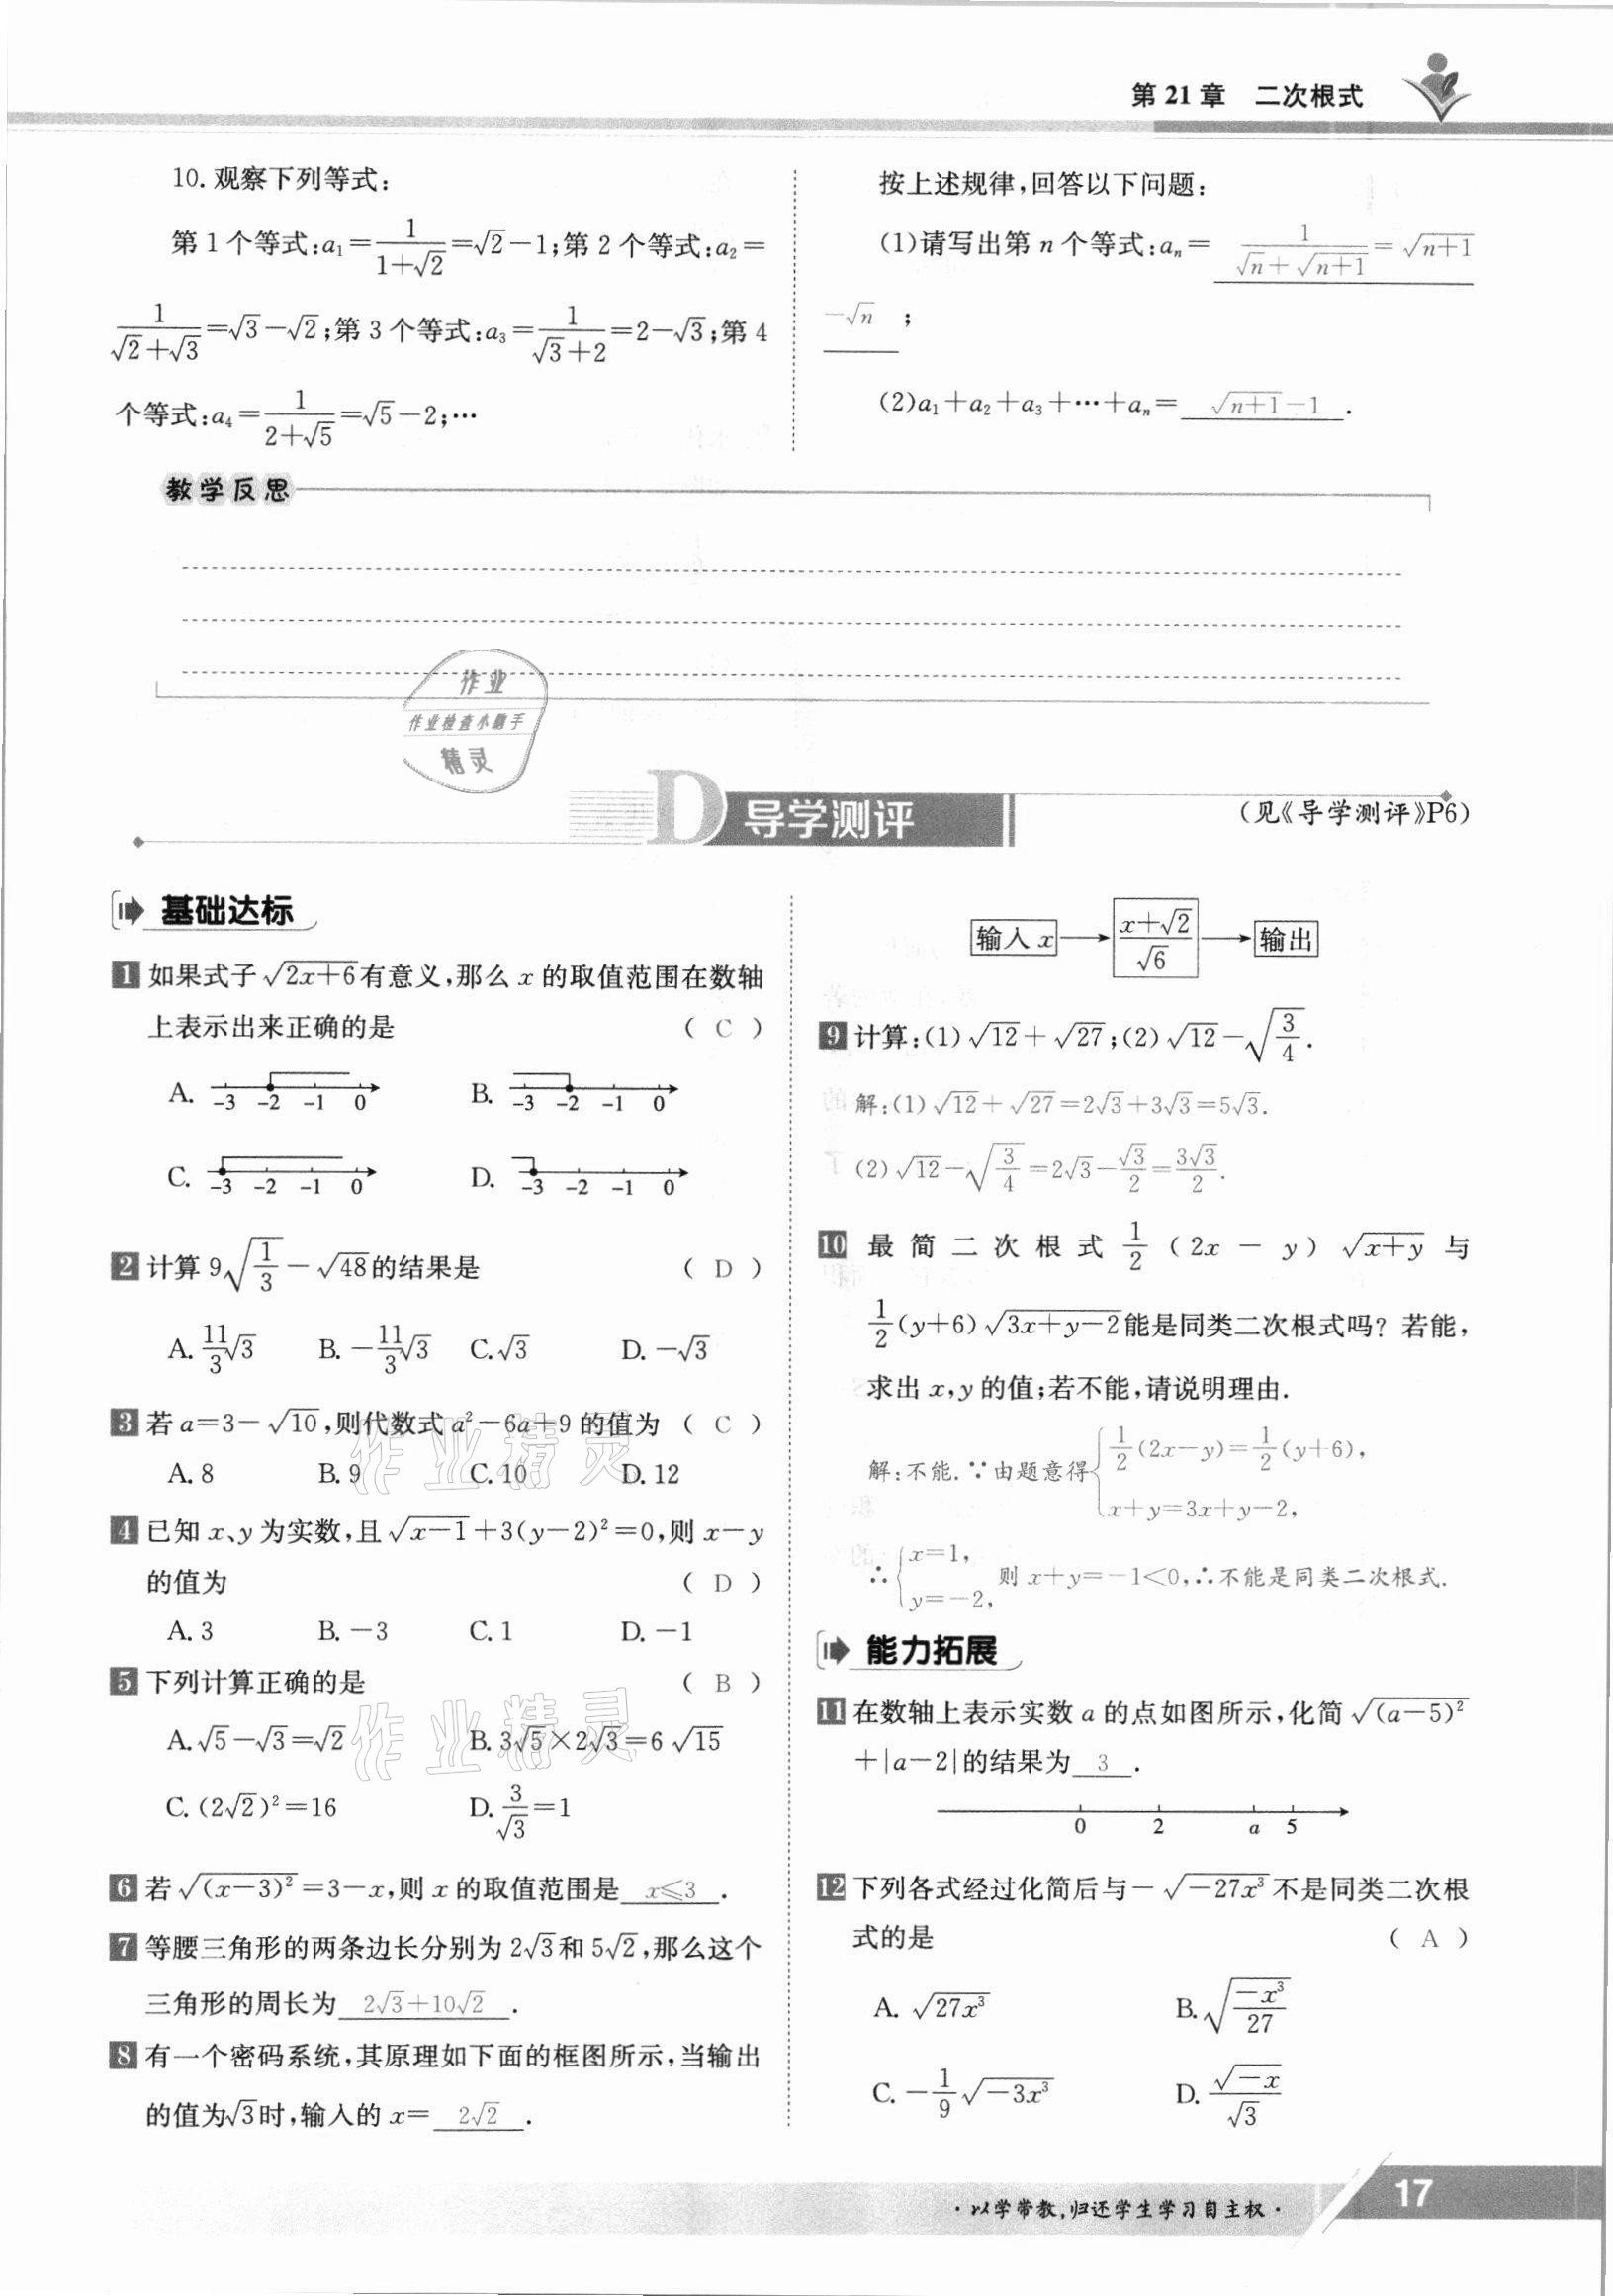 第 21 章　二次根式
10. 观察下列等式:
第 1 个等式:a₁=1/(1+√2)=√2-1;第 2 个等式:a₂=
1/(√2+√3)=√3-√2;第 3 个等式:a₃=1/(√3+2)=2-√3;第 4
个等式:a₄=1/(2+√5)=√5-2;…
按上述规律,回答以下问题:
(1)请写出第 n 个等式:aₙ= 1/(√n+√(n+1))=√(n+1)
-√n ;
(2)a₁+a₂+a₃+…+aₙ= √(n+1)-1 .
教学反思
作业
作业检查小助手
精灵
D 导学测评
(见《导学测评》P6)
基础达标
1 如果式子√(2x+6)有意义,那么 x 的取值范围在数轴
上表示出来正确的是 ( C )
A. -3 -2 -1 0 B. -3 -2 -1 0
C. -3 -2 -1 0 D. -3 -2 -1 0
2 计算 9√(1/3)-√48的结果是 ( D )
A. 11/3√3 B. -11/3√3 C. √3 D. -√3
3 若 a=3-√10,则代数式 a²-6a+9 的值为 ( C )
A. 8 B. 9 C. 10 D. 12
4 已知 x、y 为实数,且√(x-1)+3(y-2)²=0,则 x-y
的值为 ( D )
A. 3 B. -3 C. 1 D. -1
5 下列计算正确的是 ( B )
A. √5-√3=√2 B. 3√5×2√3=6√15
C. (2√2)²=16 D. 3/√3=1
6 若√((x-3)²)=3-x,则 x 的取值范围是 x≤3 .
7 等腰三角形的两条边长分别为 2√3和 5√2,那么这个
三角形的周长为 2√3+10√2 .
8 有一个密码系统,其原理如下面的框图所示,当输出
的值为√3时,输入的 x= 2√2 .
输入 x (x+√2)/√6 输出
9 计算:(1)√12+√27;(2)√12-√(3/4).
解:(1)√12+√27=2√3+3√3=5√3.
(2)√12-√(3/4)=2√3-√3/2=3√3/2.
10 最简二次根式 1/2(2x-y)√(x+y) 与
1/2(y+6)√(3x+y-2)能是同类二次根式吗? 若能,
求出 x,y 的值;若不能,请说明理由.
解:不能.∵由题意得{1/2(2x-y)=1/2(y+6),
x+y=3x+y-2,
∴{x=1, y=-2, 则 x+y=-1<0,∴不能是同类二次根式.
能力拓展
11 在数轴上表示实数 a 的点如图所示,化简√((a-5)²)
+|a-2|的结果为 3 .
0 2 a 5
12 下列各式经过化简后与-√(-27x³)不是同类二次根
式的是 ( A )
A. √(27x³) B. √(-x³/27)
C. -1/9√(-3x³) D. √(-x)/√3
作业精灵
作业精灵
·以学带教,归还学生学习自主权·
17